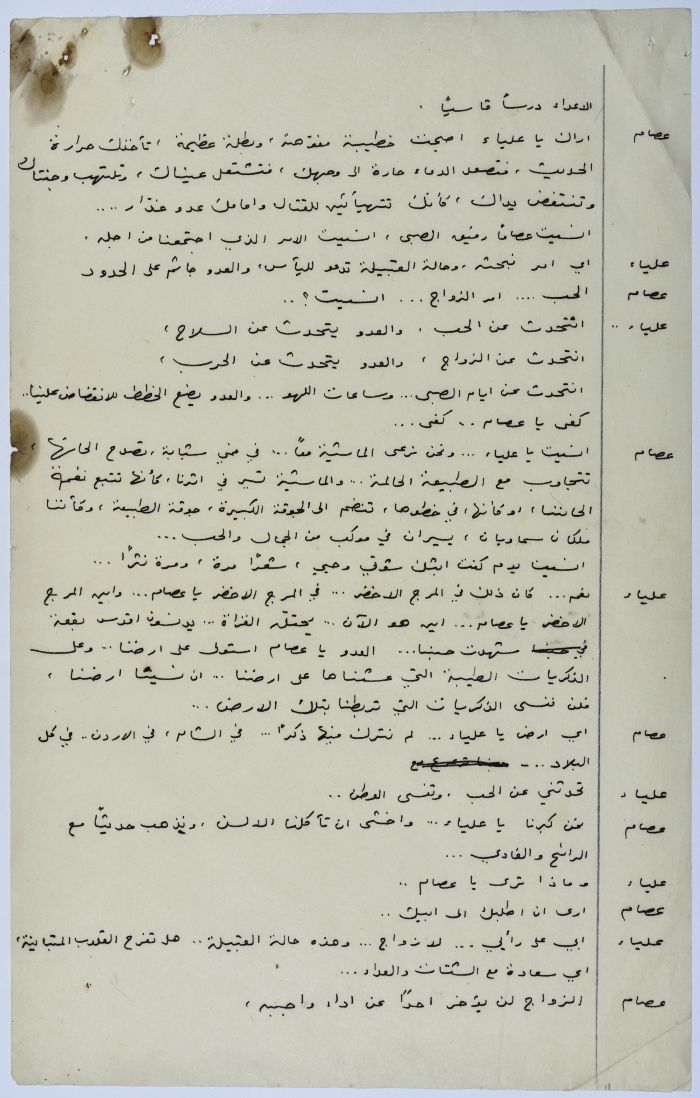 الاعداء درساً قاسياً .
عصام اراك يا علياء اصبحت خطيبة مفوّهة ، وبطلة عظيمة ، تأخذك حرارة
الحديث ، فتصعد الدماء حارة الى وجهك ، فتشتعل عيناك ، وتلتهب وجنتاك
وتنتفض يداك ، كأنك تتهيأين للقتال وامامك عدو غدّار ....
انسيت عصاماً رفيق الصبى ، انسيت الامر الذي اجتمعنا من اجله .
علياء اي امر نبحثه ، وحالة القبيلة تدعو لليأس ، والعدو جاثم على الحدود
عصام الحب .... امر الزواج ... انسيت ؟ ..
علياء .. انتحدث عن الحب ، والعدو يتحدث عن السلاح ،
انتحدث عن الزواج ، والعدو يتحدث عن الحرب ،
انتحدث عن ايام الصبى ... وساعات اللهو ... والعدو يضع الخطط للانقضاض علينا ..
كفى يا عصام .. كفى ...
عصام انسيت يا علياء ... ونحن نرعى الماشية معاً ... في فمي شبابة ، تصدح الحانها ،
تتجاوب مع الطبيعة الحالمة .. والماشية تسير في اثرنا ، كأنها تتبع نغمة
الحاننا ، او كأنها ، في خطوها ، تنضم الى الجوقة الكبيرة ، جوقة الطبيعة ، وكأننا
ملكان سماويان ، يسيران في موكب من الجمال والحب ...
انسيت يوم كنت ابثك شوقي وحبي ، شعرًا مرة ، ومرة نثرًا ...
علياء نعم ... كان ذلك في المرج الاخضر ... في المرج الاخضر يا عصام ... واين المرج
الاخضر يا عصام ... اين هو الآن ... يحتلّه الغزاة ... يدنسون اقدس بقعة
شهدت حبنا ... العدو يا عصام استولى على ارضنا .. وعلى
الذكريات الطيبة التي عشناها على ارضنا ... ان نسينا ارضنا ،
فلن ننسى الذكريات التي تربطنا بتلك الارض ...
عصام اي ارض يا علياء ... لم نترك فيها ذكرًا ... في الشام ، في الاردن .. في كل
البلاد ...
علياء تحدثني عن الحب ، وتنسى الوطن ..
عصام نحن كبرنا يا علياء ... واخشى ان تأكلنا الالسن ، ونذهب حديثاً مع
الرائح والغادي ...
علياء وماذا ترى يا عصام ..
عصام ارى ان اطلبك الى ابيك ..
علياء ابي على رأيي ... لا زواج ... وهذه حالة القبيلة .. هل تفرح القلوب المتباينة ،
اي سعادة مع الشتات والعداء ...
عصام الزواج لن يؤخر احدًا عن اداء واجبه ،